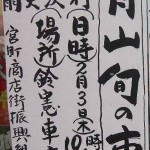 山旬の
日時 2月3日(木)10時
場所 鈴憲車
宮町商店街振興組
雨天決行